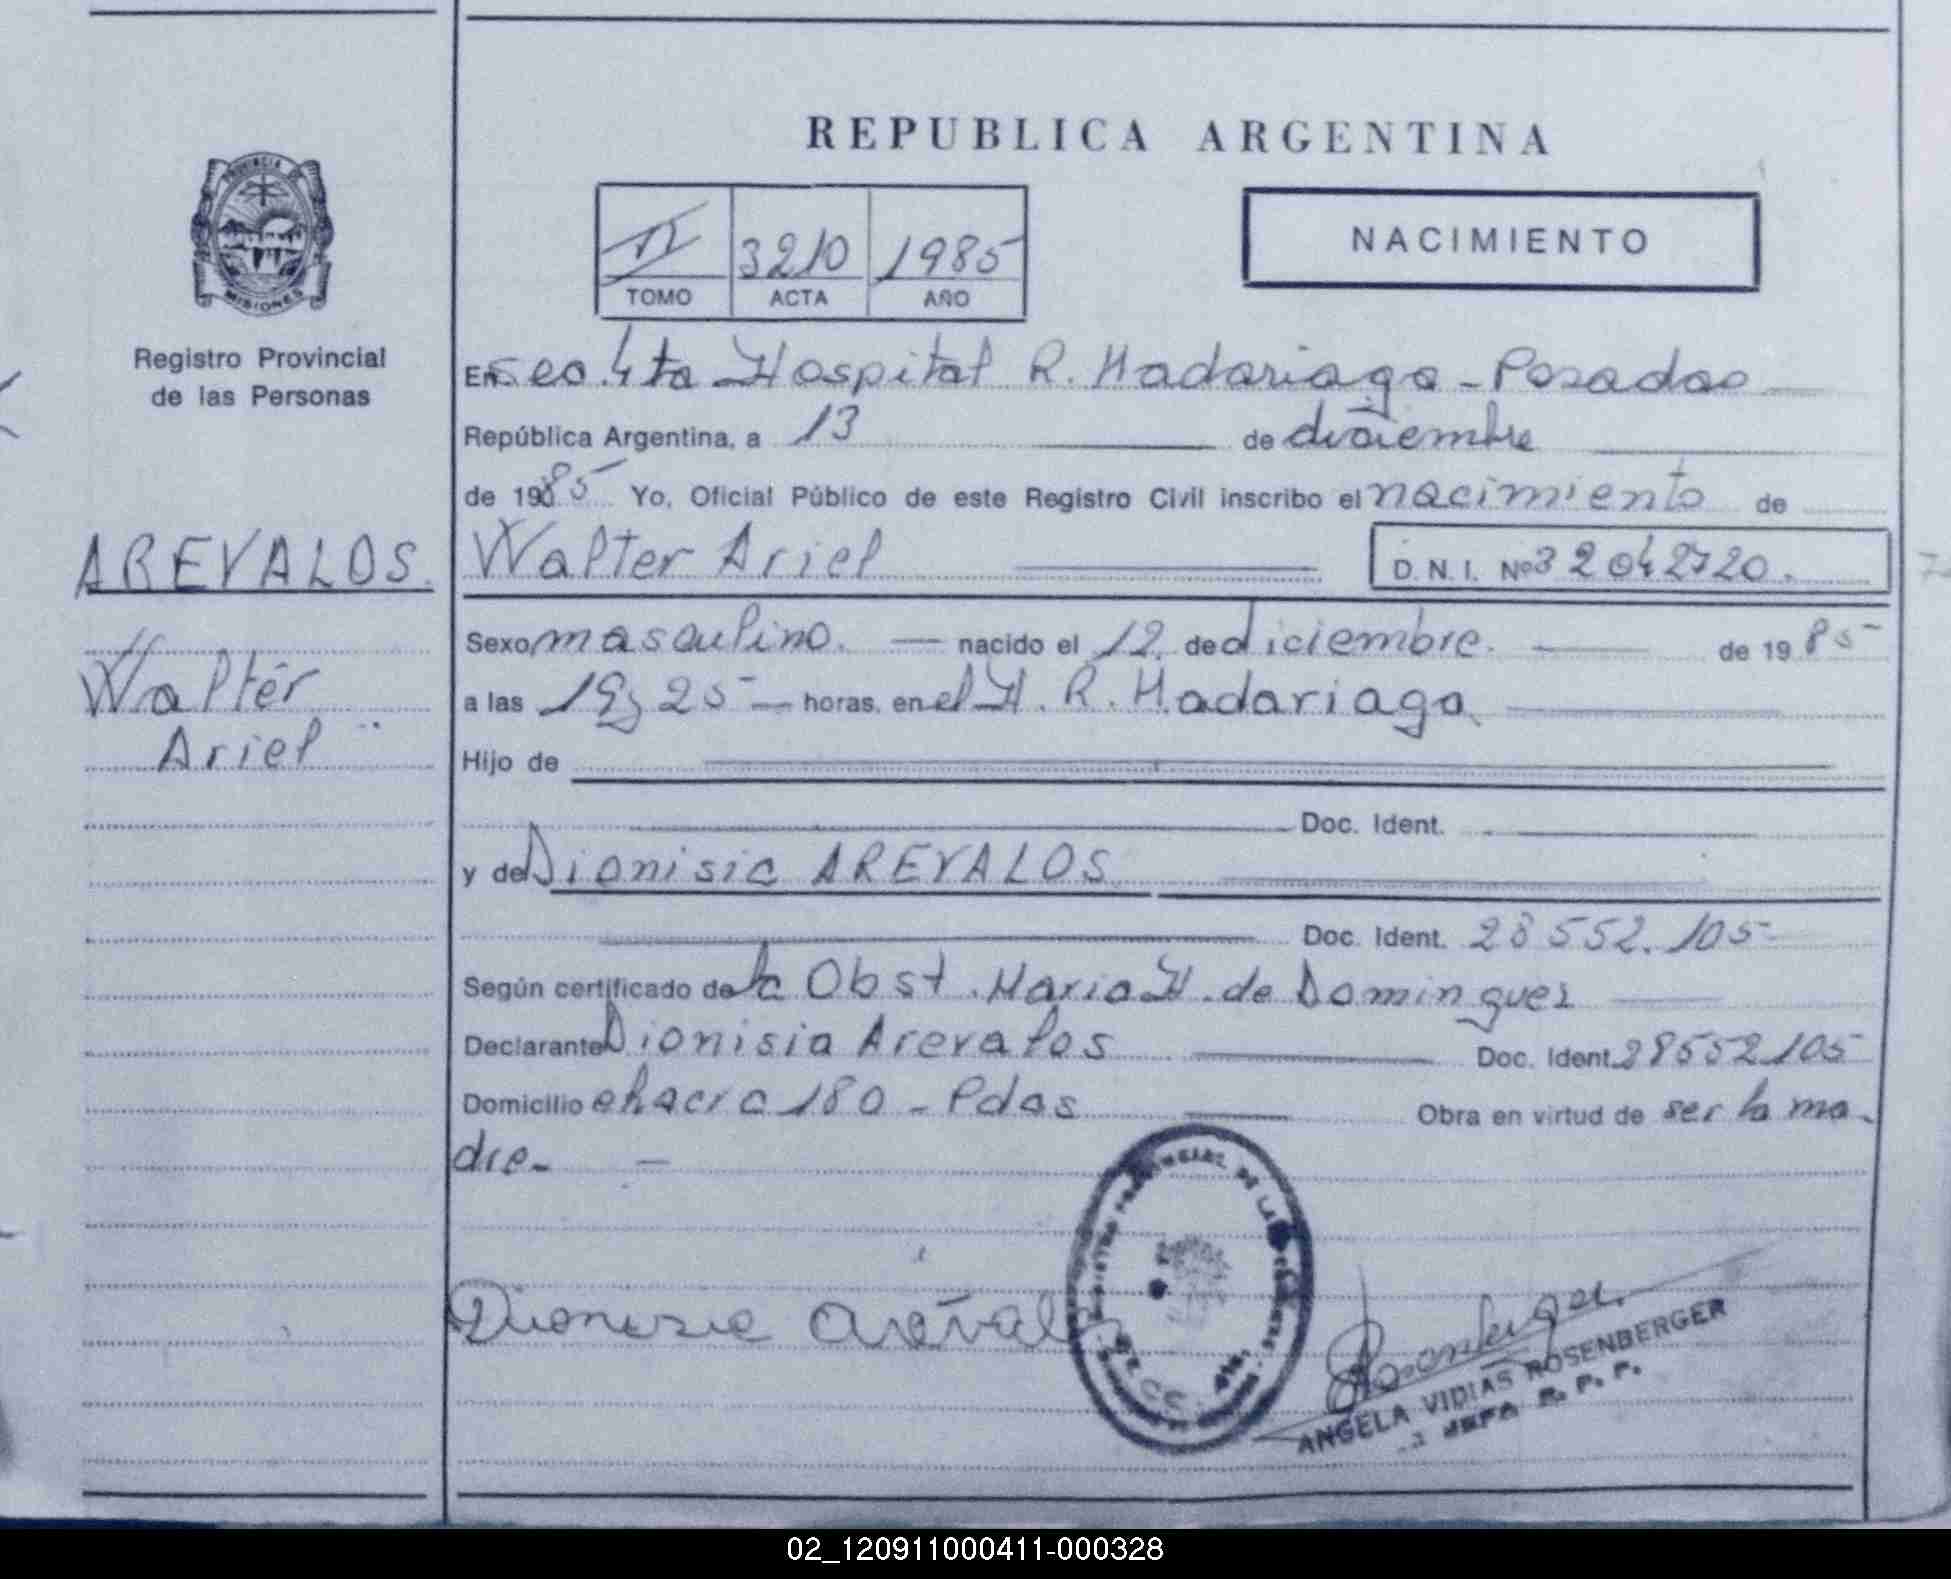 REPUBLICA ARGENTINA
PROVINCIA DE
MISIONES
Registro Provincial
de las Personas
II 3210 1985
TOMO ACTA AÑO
NACIMIENTO
En Sec. 4ta Hospital R. Madariaga - Posadas
República Argentina, a 13 de diciembre
de 1985 Yo, Oficial Público de este Registro Civil inscribo el nacimiento de
AREVALOS.
Walter Ariel D. N. I. Nº 32042720.
Walter
Ariel
Sexo masculino. nacido el 12 de diciembre. de 19 85
a las 19,25 horas, en el H. R. Madariaga
Hijo de
Doc. Ident.
y de Dionisia AREVALOS
Doc. Ident. 28 552.105
Según certificado de la Obst. Maria H. de Dominguez
Declarante Dionisia Arevalos Doc. Ident. 28552105
Domicilio chacra 180 - Pdas Obra en virtud de ser la ma-
dre.
REGISTRO PROVINCIAL DE LAS PERSONAS
ANGELA VIDIAS ROSENBERGER
JEFA R. P. P.
02_120911000411-000328